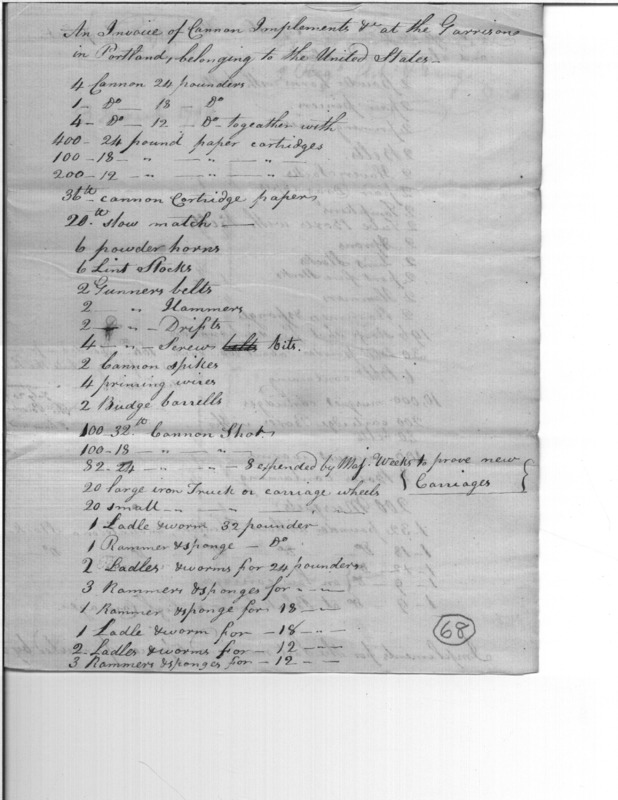 An Invoice of Cannon Implements &c at the Garrisons
in Portland, belonging to the United States —
4 Cannon 24 pounders
1 — Do — 18 — Do
4 — Do — 12 — Do — togeather with
400 - 24 pound paper cartridges
100 - 18 — " — " — " —
200 - 12 — " — " — " —
36 lb cannon Cartridge papers
20 lb slow match —
6 powder horns
6 Lint Stocks
2 Gunners belts
2 " Hammers
2 — " — Drifts
4 — " — Screws bits.
2 Cannon spikes
4 priming wires
2 Budge barrells
100 - 32 lb Cannon Shot.
100 - 18 — " — " — "
82 - 24 — " — " — " — 8 expended by Maj. Weeks to prove new
Carriages
20 large iron Truck or carriage wheels
20 small — " — " — "
1 Ladle & worm 32 pounder
1 Rammer & sponge — Do
2 Ladles & worms for 24 pounders
3 Rammers & sponges for " — "
1 Rammer & sponge for 18 — "
1 Ladle & worm for — 18 — " —
2 - Ladles & worms for — 12 — " —
3 Rammers & sponges for — 12 — " —
68